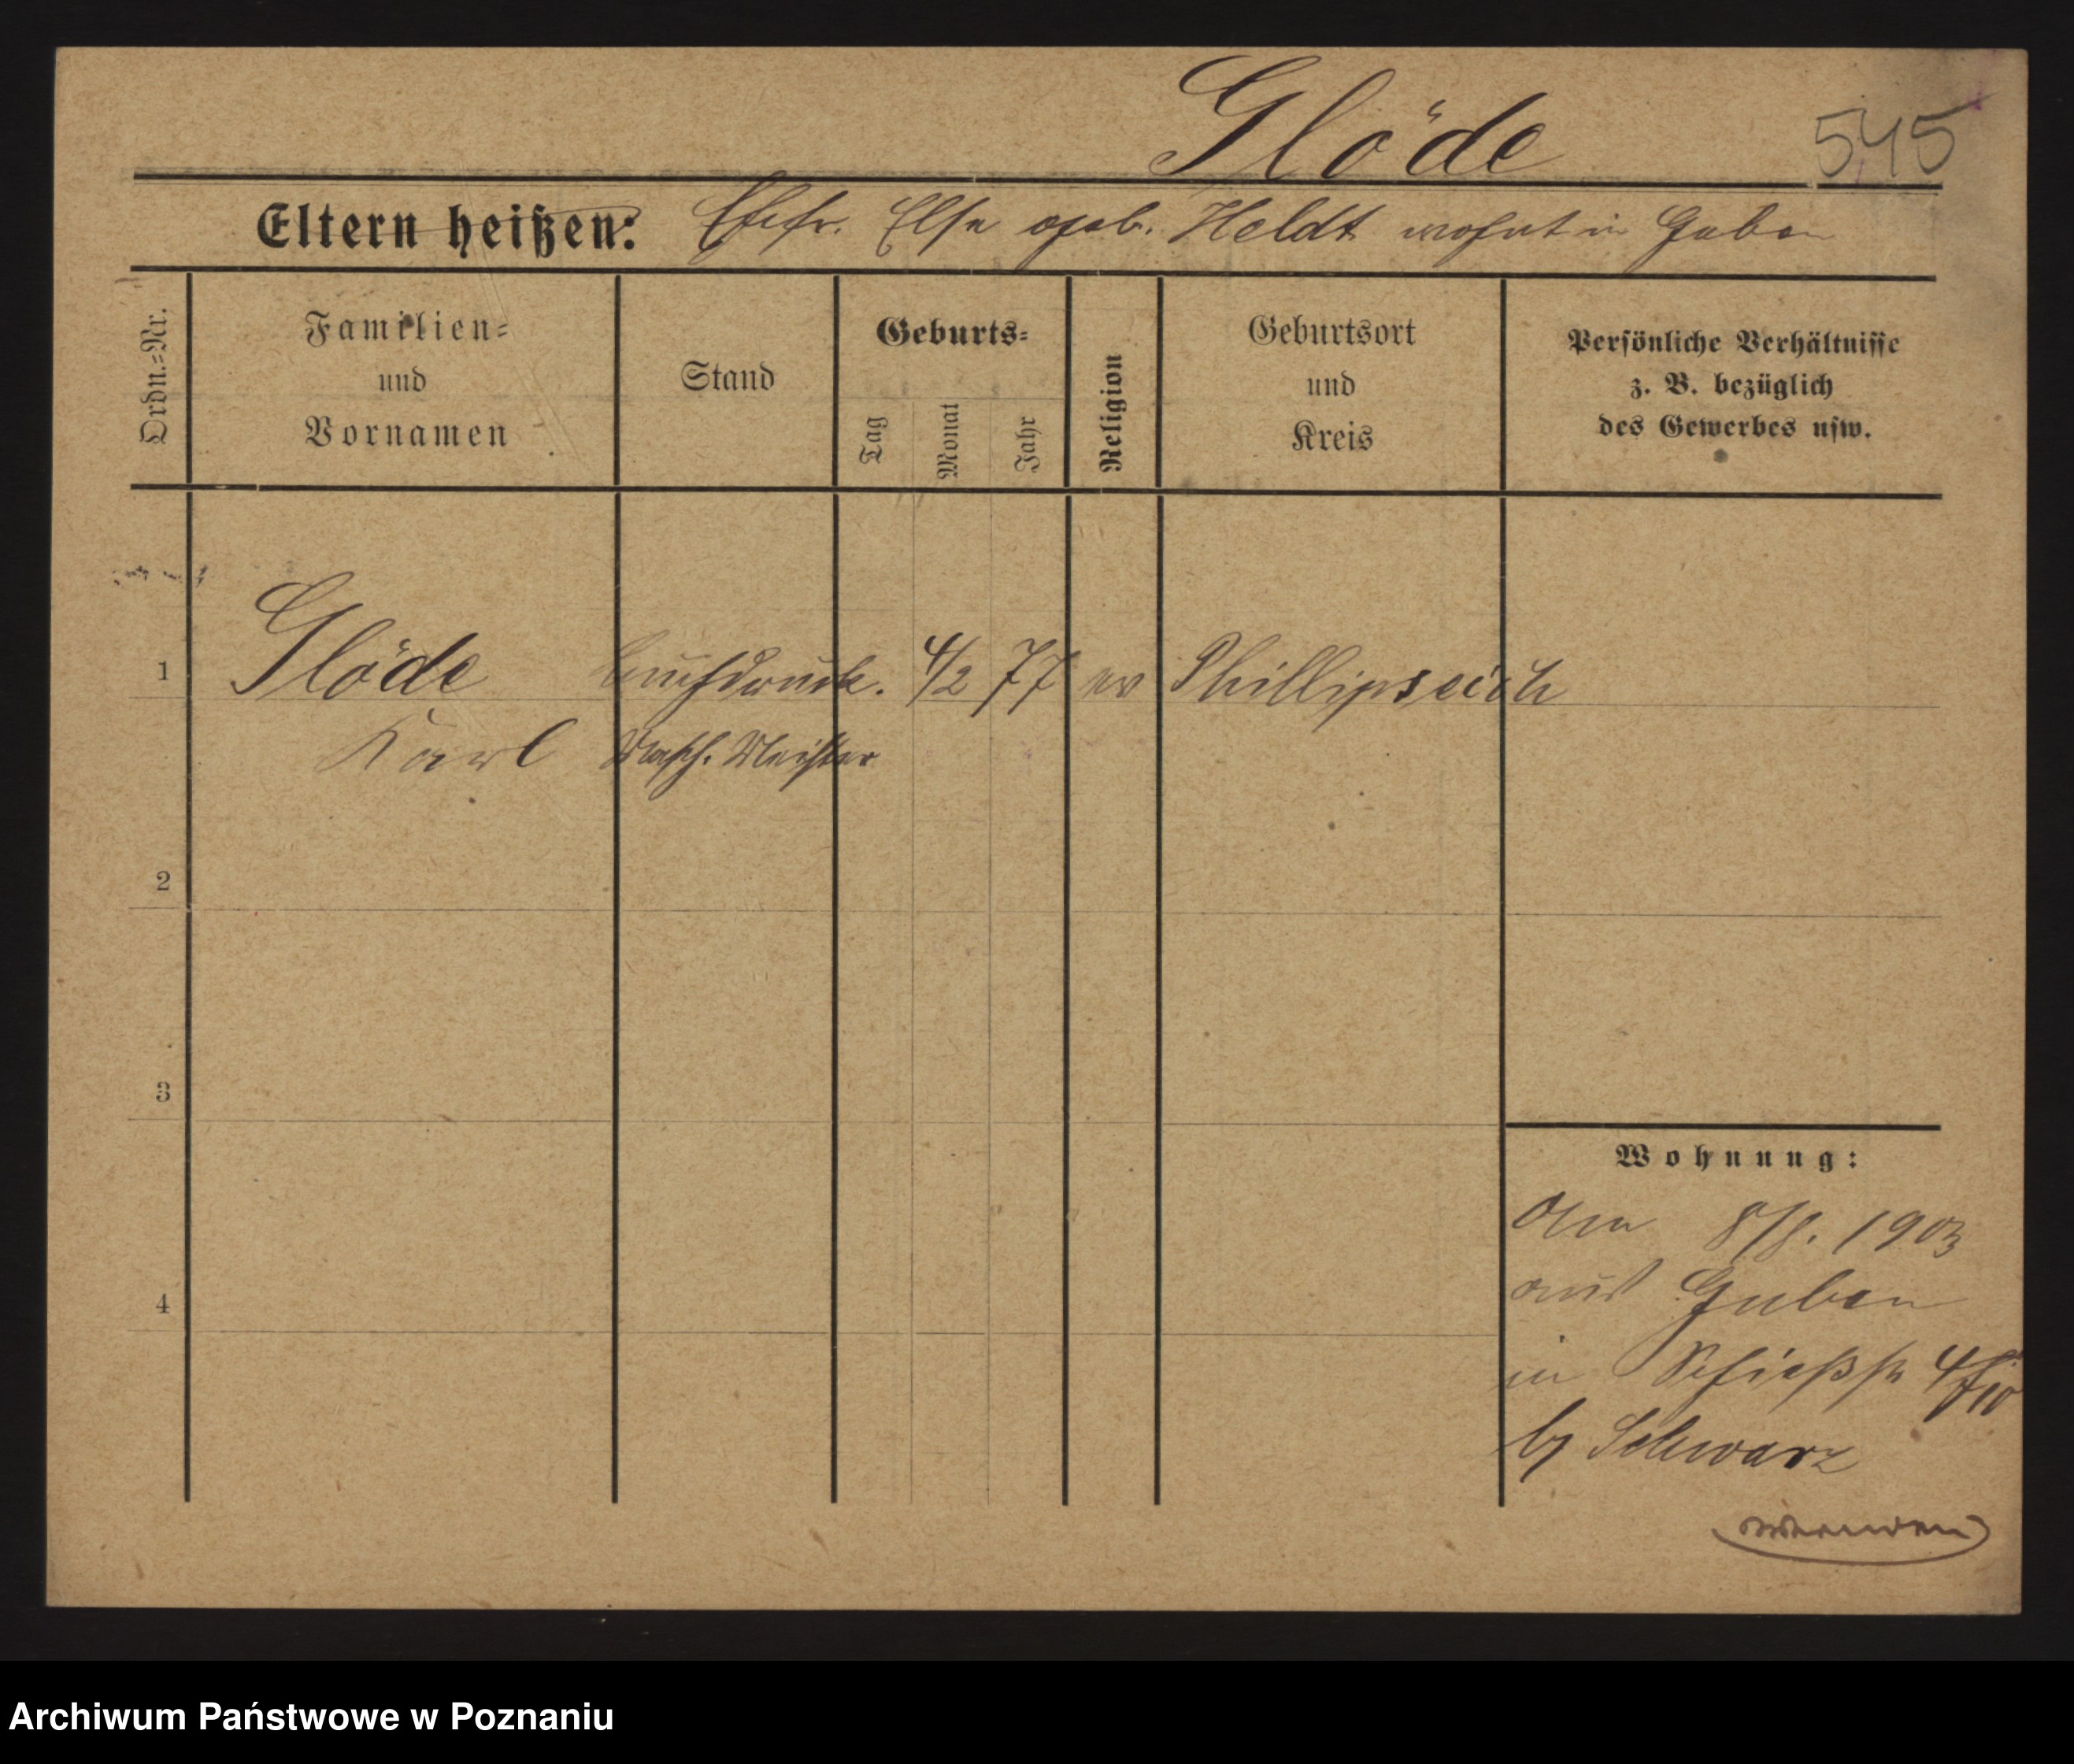 Glöde 545
Eltern heißen: Ehefr. Else geb. Heldt wohnt in Guben
Ordn.=Nr.
Familien=
und
Vornamen
Stand
Geburts=
Tag
Monat
Jahr
Religion
Geburtsort
und
Kreis
Persönliche Verhältnisse
z. B. bezüglich
des Gewerbes usw.
1 Glöde Buchdruck. 4/2 77 ev Phillipseich
Karl Masch. Meister
2
3
4
Wohnung:
Am 8/8. 1903
aus Guben
in Schießstr
by Schwarz
Archiwum Państwowe w Poznaniu